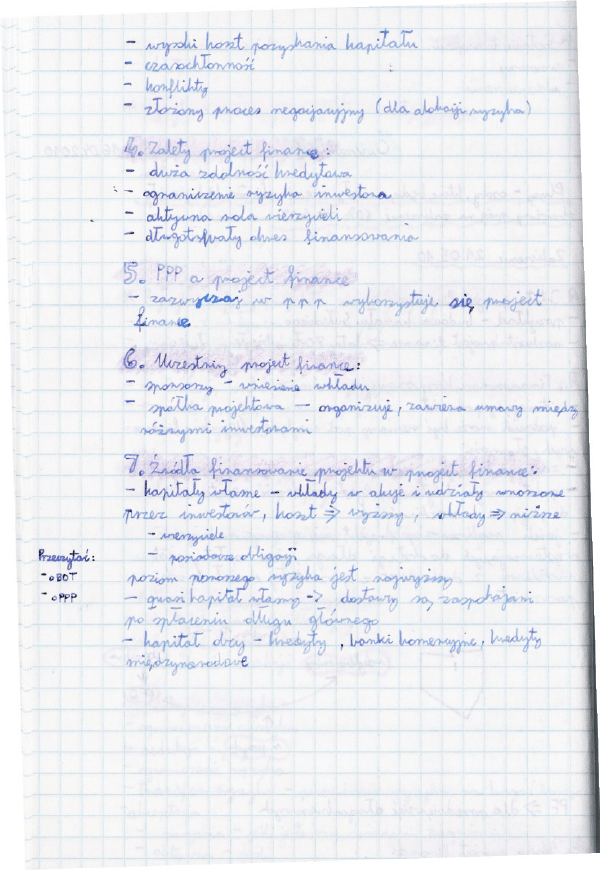 - wysoki koszt pozyskania kapitału
- czasochłonność
- konflikty
- złożony proces negocjacyjny (dla alokacji ryzyka)
4. Zalety project finance:
- duża zdolność kredytowa
- ograniczenie ryzyka inwestora
- aktywna rola wierzycieli
- długotrwały okres finansowania
5. PPP a project finance
- zazwyczaj w p p p wykorzystuje się project
finance
6. Uczestnicy project finance:
- sponsorzy - wniesienie wkładu
- spółka projektowa - organizuje, zawiera umowy między
różnymi inwestorami
7. Źródła finansowanie projektu w project finance:
- kapitały własne - wkłady w akcje i udziały wnoszone
przez inwestorów, koszt ⇒ wyższy, wkłady ⇒ niższe
- wierzyciele
- posiadacze obligacji
Przeczytać:
- o BOT
- o PPP
poziom ponoszego ryzyka jest najwyższy
- quasi kapitał własny -> dostawcy są zaspokajani
po spłaceniu długu głównego
- kapitał obcy - kredyty, banki komercyjne, kredyty
międzynarodowe